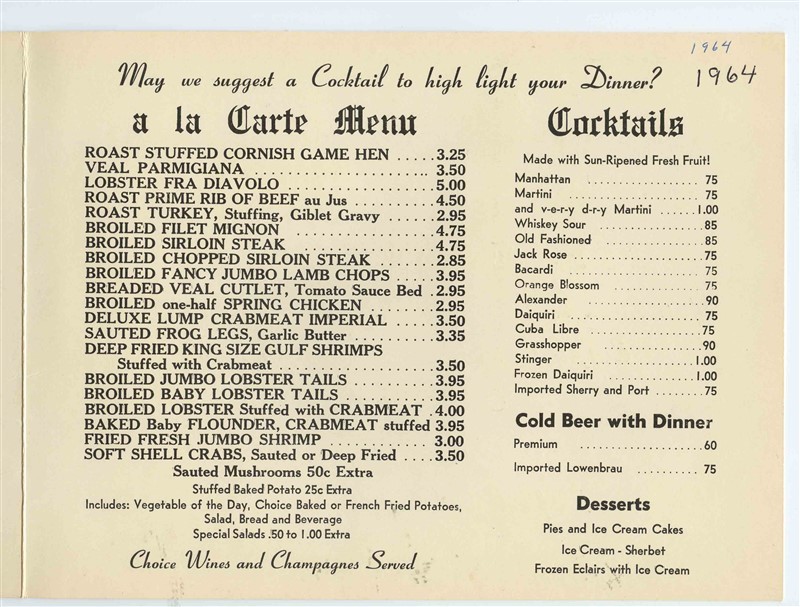 1964
1964
May we suggest a Cocktail to high light your Dinner?
a la Carte Menu
ROAST STUFFED CORNISH GAME HEN . . . . . 3.25
VEAL PARMIGIANA . . . . . . . . . . . . . . . . . . . . 3.50
LOBSTER FRA DIAVOLO . . . . . . . . . . . . . . . . 5.00
ROAST PRIME RIB OF BEEF au Jus . . . . . . . . . 4.50
ROAST TURKEY, Stuffing, Giblet Gravy . . . . . . 2.95
BROILED FILET MIGNON . . . . . . . . . . . . . . . 4.75
BROILED SIRLOIN STEAK . . . . . . . . . . . . . . . 4.75
BROILED CHOPPED SIRLOIN STEAK . . . . . . . 2.85
BROILED FANCY JUMBO LAMB CHOPS . . . . . 3.95
BREADED VEAL CUTLET, Tomato Sauce Bed . 2.95
BROILED one-half SPRING CHICKEN . . . . . . . . 2.95
DELUXE LUMP CRABMEAT IMPERIAL . . . . . . 3.50
SAUTED FROG LEGS, Garlic Butter . . . . . . . . . 3.35
DEEP FRIED KING SIZE GULF SHRIMPS
Stuffed with Crabmeat . . . . . . . . . . . . . . . . . 3.50
BROILED JUMBO LOBSTER TAILS . . . . . . . . . 3.95
BROILED BABY LOBSTER TAILS . . . . . . . . . . 3.95
BROILED LOBSTER Stuffed with CRABMEAT . 4.00
BAKED Baby FLOUNDER, CRABMEAT stuffed 3.95
FRIED FRESH JUMBO SHRIMP . . . . . . . . . . . 3.00
SOFT SHELL CRABS, Sauted or Deep Fried . . . . 3.50
Sauted Mushrooms 50c Extra
Stuffed Baked Potato 25c Extra
Includes: Vegetable of the Day, Choice Baked or French Fried Potatoes,
Salad, Bread and Beverage
Special Salads .50 to 1.00 Extra
Choice Wines and Champagnes Served
Cocktails
Made with Sun-Ripened Fresh Fruit!
Manhattan . . . . . . . . . . . . . . . 75
Martini . . . . . . . . . . . . . . . 75
and v-e-r-y d-r-y Martini . . . . . . 1.00
Whiskey Sour . . . . . . . . . . . . . . 85
Old Fashioned . . . . . . . . . . . . . 85
Jack Rose . . . . . . . . . . . . . . . . 75
Bacardi . . . . . . . . . . . . . . . . 75
Orange Blossom . . . . . . . . . . . 75
Alexander . . . . . . . . . . . . . . 90
Daiquiri . . . . . . . . . . . . . . . . 75
Cuba Libre . . . . . . . . . . . . . . 75
Grasshopper . . . . . . . . . . . . . 90
Stinger . . . . . . . . . . . . . . . . 1.00
Frozen Daiquiri . . . . . . . . . . . 1.00
Imported Sherry and Port . . . . . . . . 75
Cold Beer with Dinner
Premium . . . . . . . . . . . . . . . . 60
Imported Lowenbrau . . . . . . . . . . 75
Desserts
Pies and Ice Cream Cakes
Ice Cream - Sherbet
Frozen Eclairs with Ice Cream